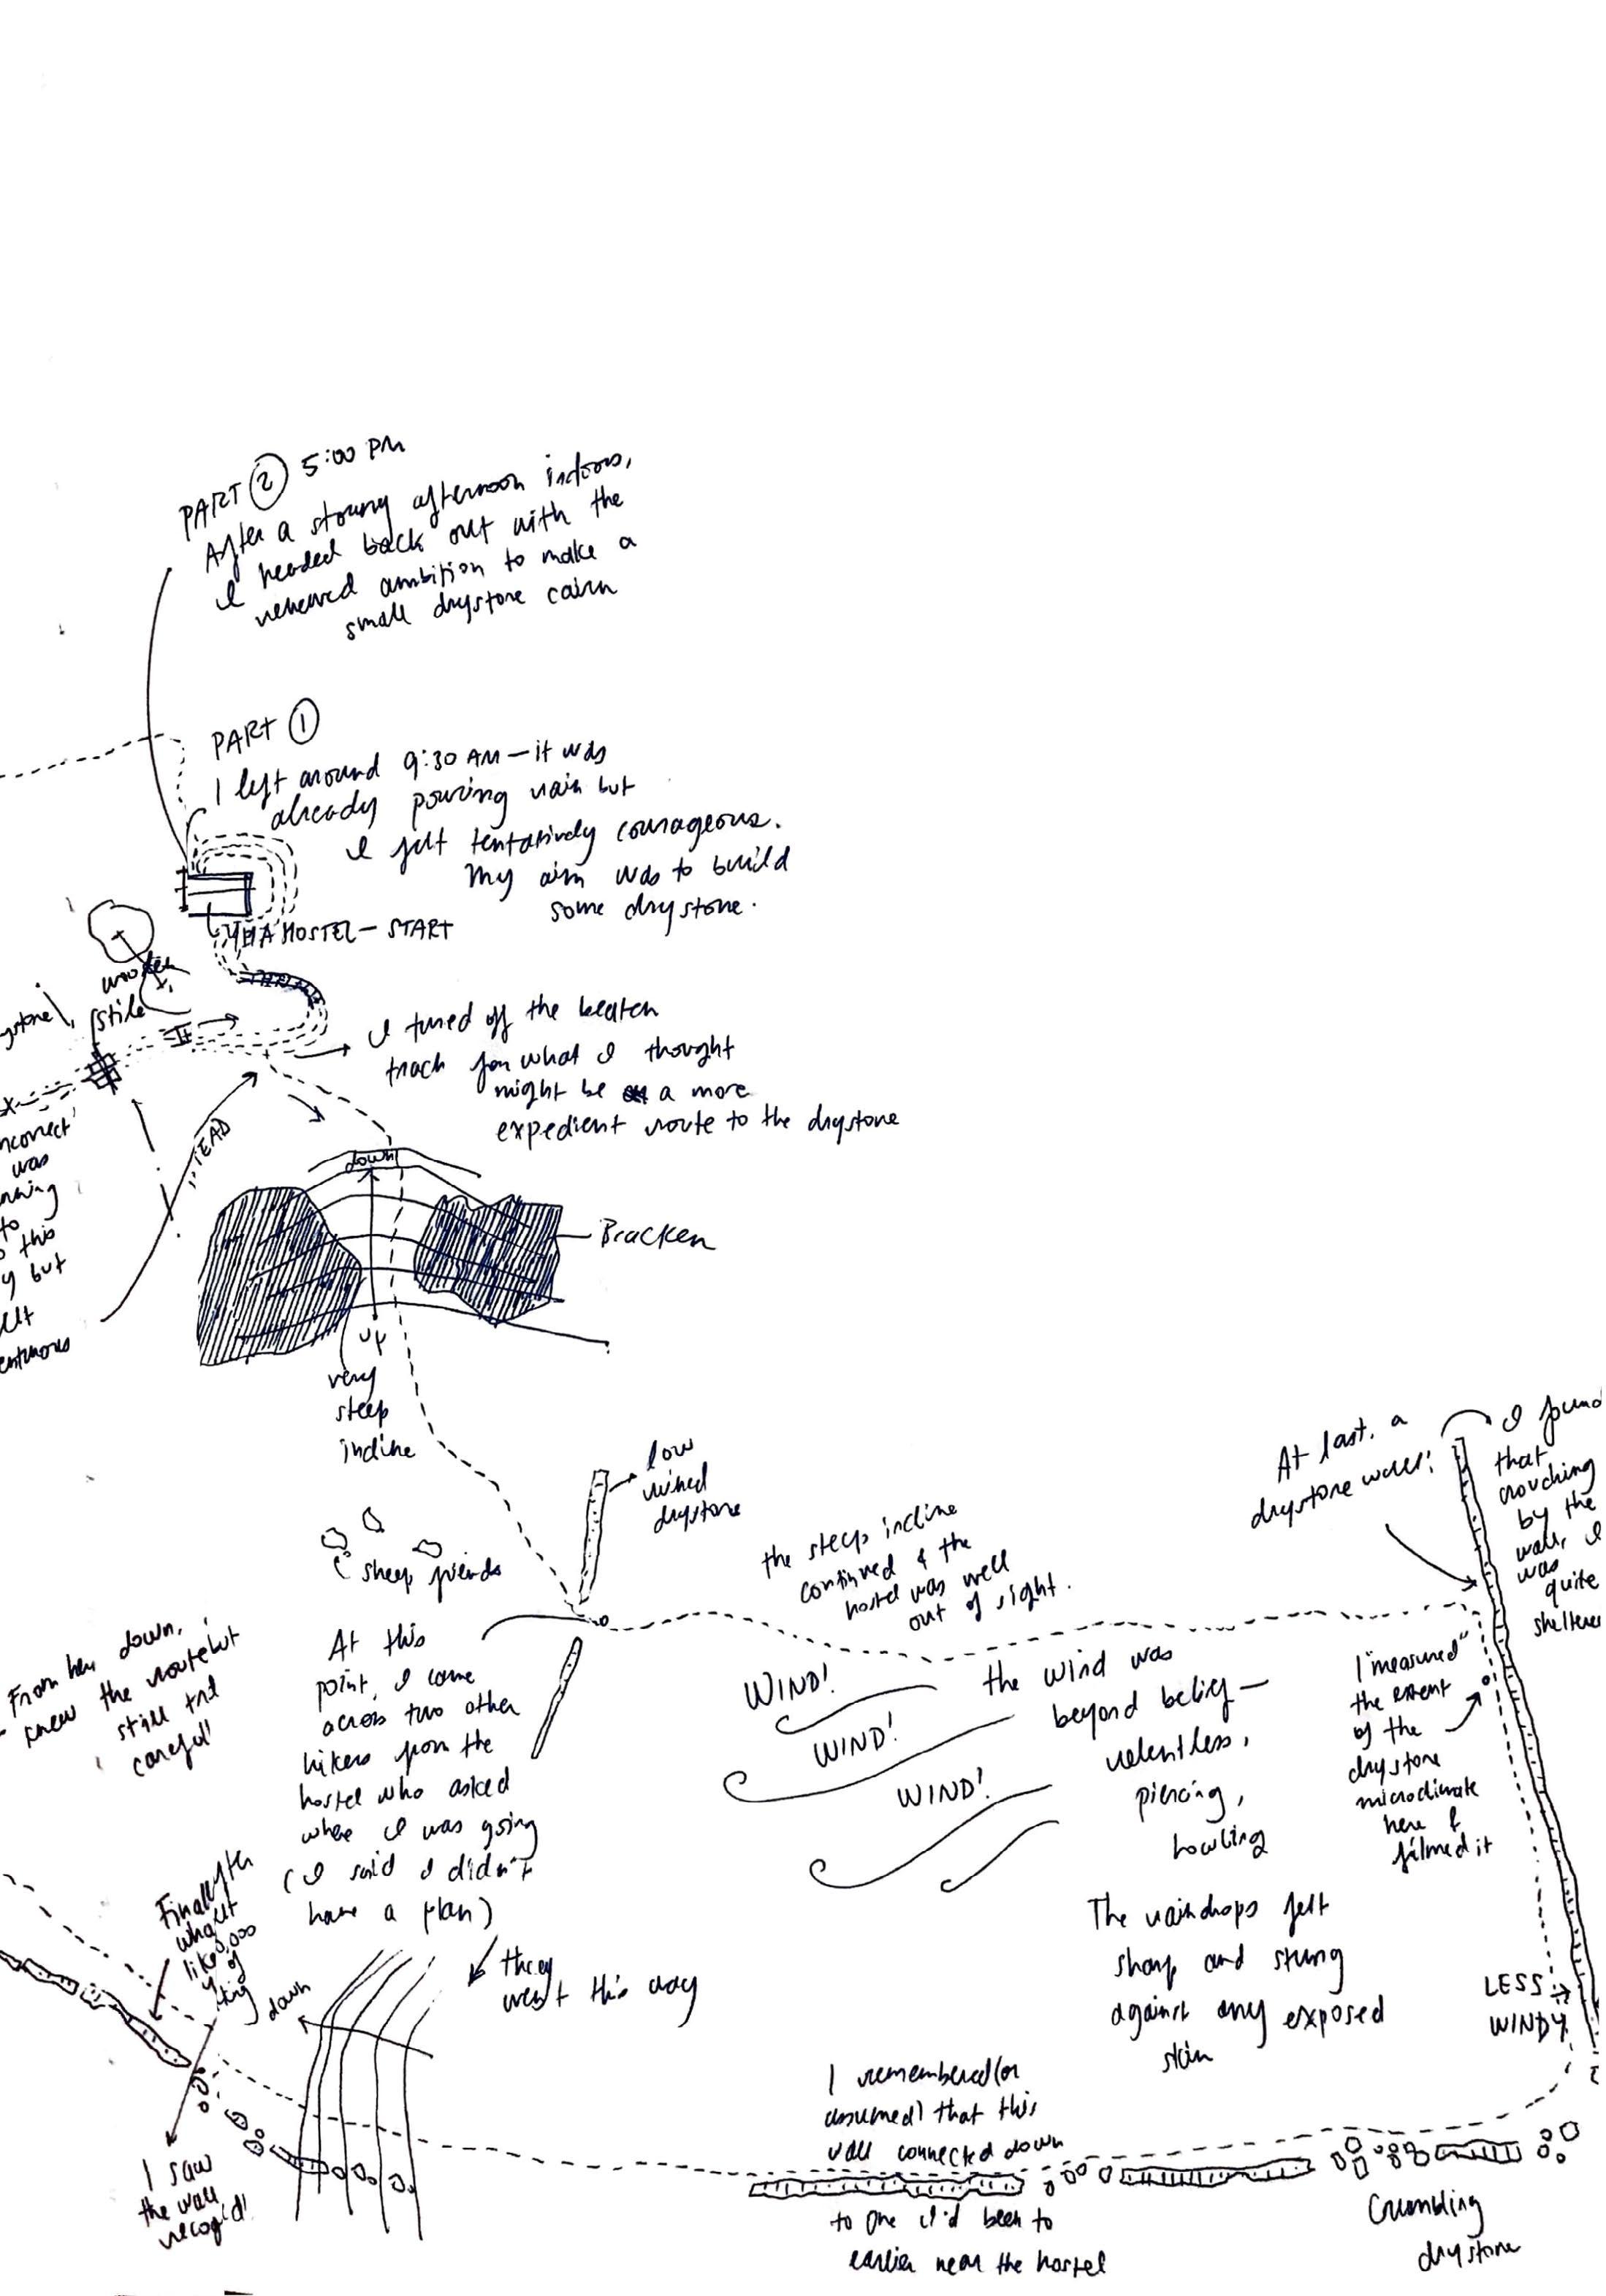 PART ② 5:00 PM
After a stormy afternoon indoors,
I headed back out with the
renewed ambition to make a
small drystone cairn
PART ①
I left around 9:30 AM – it was
already pouring rain but
I felt tentatively courageous.
My aim was to build
some drystone.
YHA HOSTEL – START
wooden
stile
I turned off the beaten
track for what I thought
might be a more
expedient route to the drystone
ncorrect
was
to
this
y but
elt
HEAD
down
Bracken
up
very
steep
incline
low
ruined
drystone
sheep friends
the steep incline
continued & the
hostel was well
out of sight.
At last, a
drystone wall!
I found
that
crouching
by the
wall, I
was
quite
sheltered
At this
point, I came
across two other
hikers from the
hostel who asked
where I was going
(I said I didn't
have a plan)
they
went this way
WIND!
WIND!
WIND!
the wind was
beyond belief –
relentless,
piercing,
howling
The raindrops felt
sharp and stung
against any exposed
skin
I "measured"
the extent
of the
drystone
microclimate
here &
filmed it
LESS
WINDY
From here down,
knew the route but
still trod
careful
Finally
down
I saw
the wall
I remembered (or
assumed) that this
wall connected down
to one I'd been to
earlier near the hostel
Crumbling
drystone